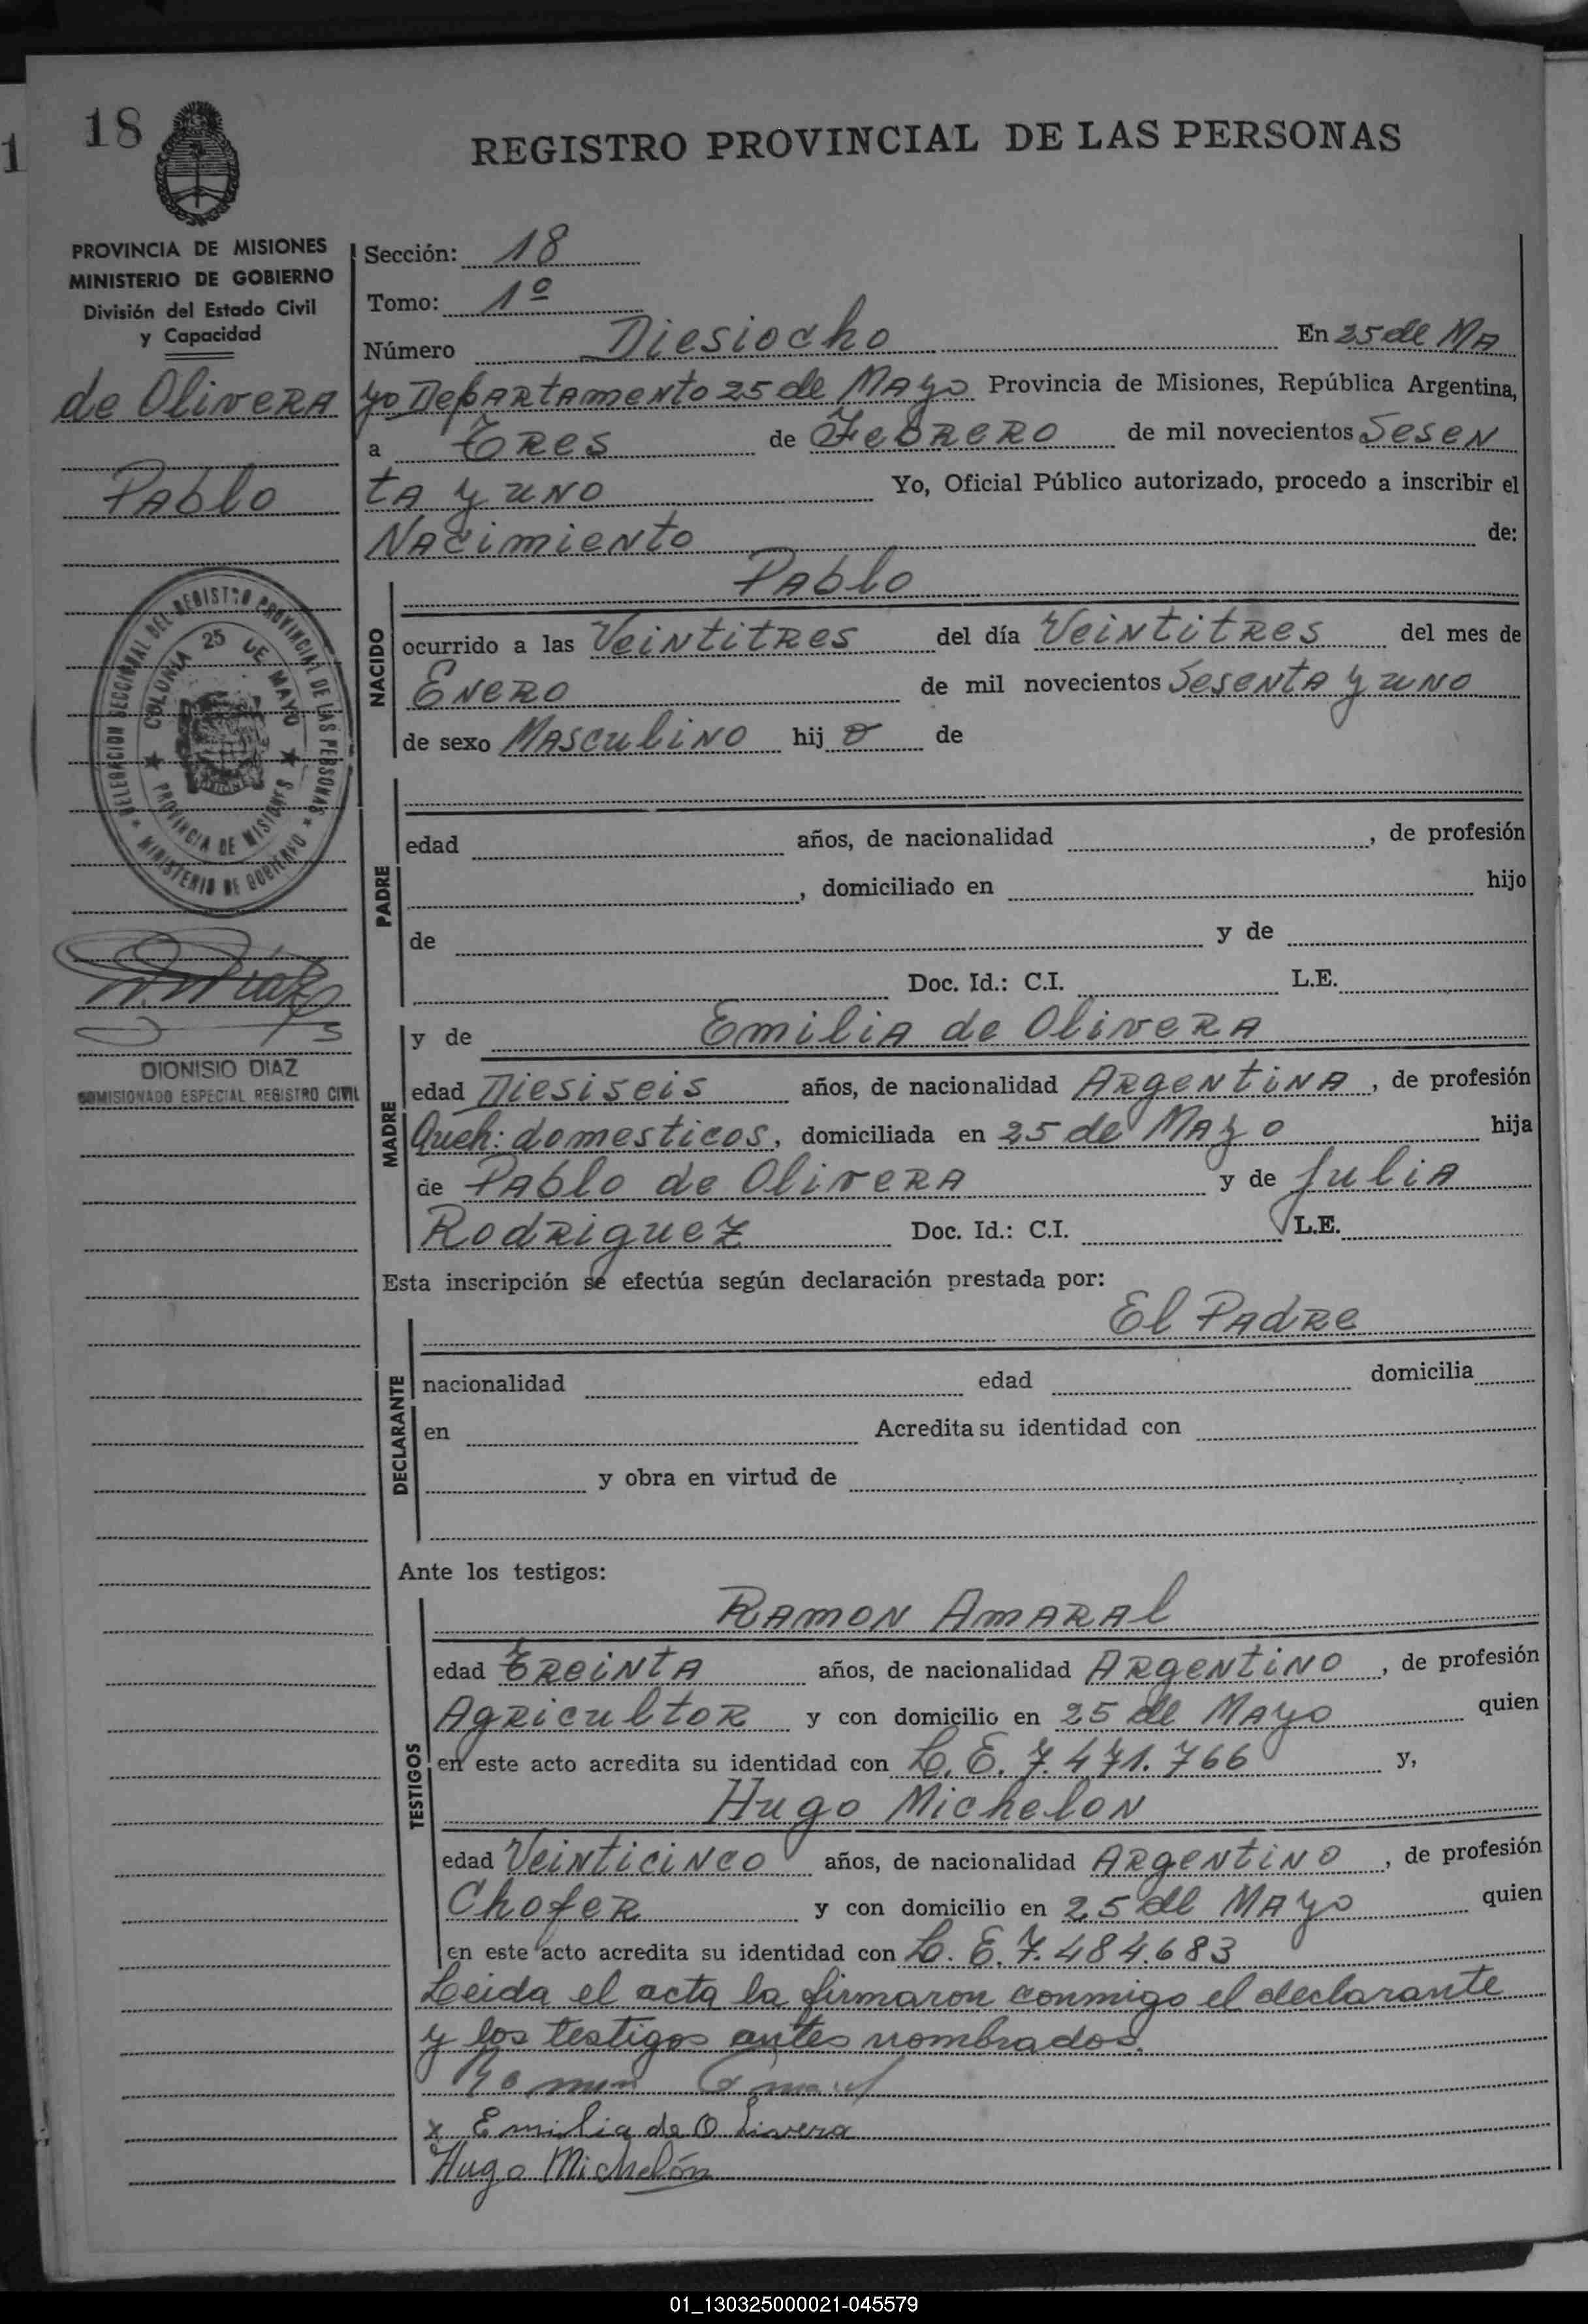 1
18
REGISTRO PROVINCIAL DE LAS PERSONAS
PROVINCIA DE MISIONES
MINISTERIO DE GOBIERNO
División del Estado Civil
y Capacidad
de Olivera
Pablo
DELEGACION SECCIONAL DEL REGISTRO PROVINCIAL DE LAS PERSONAS
MINISTERIO DE GOBIERNO
COLONIA 25 DE MAYO
PROVINCIA DE MISIONES
DIONISIO DIAZ
COMISIONADO ESPECIAL REGISTRO CIVIL
Sección: 18
Tomo: 1º
Número Diesiocho En 25 de Ma
yo Departamento 25 de Mayo Provincia de Misiones, República Argentina,
a Tres de Febrero de mil novecientos Sesen
ta y uno Yo, Oficial Público autorizado, procedo a inscribir el
Nacimiento de:
Pablo
NACIDO
ocurrido a las Veintitres del día Veintitres del mes de
Enero de mil novecientos Sesenta y uno
de sexo Masculino hijo de
PADRE
edad años, de nacionalidad , de profesión
, domiciliado en hijo
de y de
Doc. Id.: C.I. L.E.
y de Emilia de Olivera
MADRE
edad Diesiseis años, de nacionalidad Argentina, de profesión
Queh: domesticos, domiciliada en 25 de Mayo hija
de Pablo de Olivera y de Julia
Rodriguez Doc. Id.: C.I. L.E.
Esta inscripción se efectúa según declaración prestada por:
El Padre
DECLARANTE
nacionalidad edad domicilia
en Acredita su identidad con
y obra en virtud de
Ante los testigos:
Ramon Amaral
TESTIGOS
edad Treinta años, de nacionalidad Argentino, de profesión
Agricultor y con domicilio en 25 de Mayo quien
en este acto acredita su identidad con L. E. 7.471.766 y,
Hugo Michelon
edad Veinticinco años, de nacionalidad Argentino, de profesión
Chofer y con domicilio en 25 de Mayo quien
en este acto acredita su identidad con L. E. 7.484.683
Leida el acta la firmaron conmigo el declarante
y los testigos antes nombrados.
x Emilia de Olivera
Hugo Michelón
01_130325000021-045579